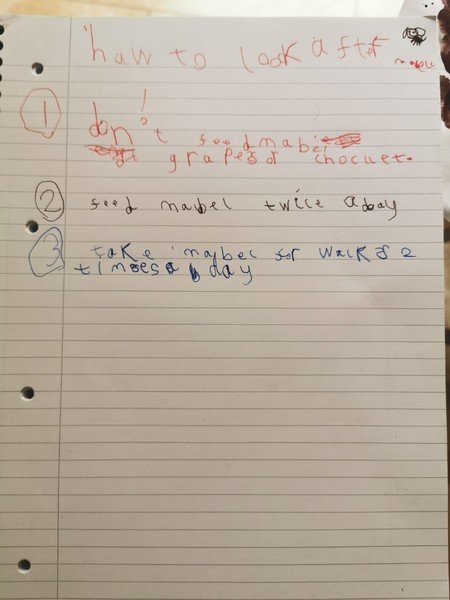 haw to look after
mabel
1 don't feedmabel
grapes or chocuet.
2 feed mabel twice a day
3 take mabel for walks 2
timesa day